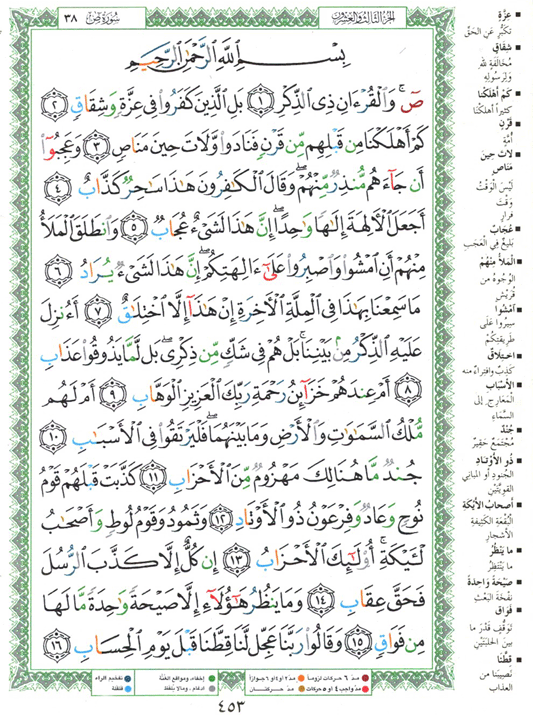 الجزء الثالث والعشرون
سورة ص ٣٨
بِسْمِ اللَّهِ الرَّحْمَٰنِ الرَّحِيمِ
صٓ ۚ وَالْقُرْءَانِ ذِي الذِّكْرِ ١ بَلِ الَّذِينَ كَفَرُوا فِي عِزَّةٍ وَشِقَاقٍ ٢
كَمْ أَهْلَكْنَا مِن قَبْلِهِم مِّن قَرْنٍ فَنَادَوا وَّلَاتَ حِينَ مَنَاصٍ ٣ وَعَجِبُوٓا
أَن جَآءَهُم مُّنذِرٌ مِّنْهُمْ ۖ وَقَالَ الْكَٰفِرُونَ هَٰذَا سَٰحِرٌ كَذَّابٌ ٤
أَجَعَلَ الْأٓلِهَةَ إِلَٰهًا وَٰحِدًا ۖ إِنَّ هَٰذَا لَشَيْءٌ عُجَابٌ ٥ وَانطَلَقَ الْمَلَأُ
مِنْهُمْ أَنِ امْشُوا وَاصْبِرُوا عَلَىٰٓ ءَالِهَتِكُمْ ۖ إِنَّ هَٰذَا لَشَيْءٌ يُرَادُ ٦
مَا سَمِعْنَا بِهَٰذَا فِي الْمِلَّةِ الْأٓخِرَةِ إِنْ هَٰذَآ إِلَّا اخْتِلَٰقٌ ٧ أَءُنزِلَ
عَلَيْهِ الذِّكْرُ مِنۢ بَيْنِنَا ۚ بَلْ هُمْ فِي شَكٍّ مِّن ذِكْرِي ۖ بَل لَّمَّا يَذُوقُوا عَذَابِ
٨ أَمْ عِندَهُمْ خَزَآئِنُ رَحْمَةِ رَبِّكَ الْعَزِيزِ الْوَهَّابِ ٩ أَمْ لَهُم
مُّلْكُ السَّمَٰوَٰتِ وَالْأَرْضِ وَمَا بَيْنَهُمَا ۖ فَلْيَرْتَقُوا فِي الْأَسْبَٰبِ ١٠
جُندٌ مَّا هُنَالِكَ مَهْزُومٌ مِّنَ الْأَحْزَابِ ١١ كَذَّبَتْ قَبْلَهُمْ قَوْمُ
نُوحٍ وَعَادٌ وَفِرْعَوْنُ ذُو الْأَوْتَادِ ١٢ وَثَمُودُ وَقَوْمُ لُوطٍ وَأَصْحَٰبُ
لْـَٔيْكَةِ ۚ أُولَٰٓئِكَ الْأَحْزَابُ ١٣ إِن كُلٌّ إِلَّا كَذَّبَ الرُّسُلَ
فَحَقَّ عِقَابِ ١٤ وَمَا يَنظُرُ هَٰٓؤُلَآءِ إِلَّا صَيْحَةً وَٰحِدَةً مَّا لَهَا
مِن فَوَاقٍ ١٥ وَقَالُوا رَبَّنَا عَجِّل لَّنَا قِطَّنَا قَبْلَ يَوْمِ الْحِسَابِ ١٦
عِزَّةٍ
تكبّر عن الحقّ
شقاق
مخالفة لله
ولرسوله
كم أهلكنا
كثيراً أهلكنا
قرن
أمّة
لات حين
مناص
ليس الوقت
وقت
فرار
عجاب
بليغ في العجب
الملأ منهم
الوجوه من
قريش
امشوا
سيروا على
طريقتكم
اختلاق
كذب وافتراء منه
الأسباب
المعارج إلى
السماء
جند
مجتمع حقير
ذو الأوتاد
الجنود أو المباني
القويّة
أصحاب الأيكة
البقعة الكثيفة
الأشجار
ما ينظر
ما ينتظر
صيحة واحدة
نفخة البعث
فواق
توقّف قدر ما
بين الحلبتين
قطّنا
نصيبنا من
العذاب
مدّ ٦ حركات لزوماً
مدّ ٢ أو ٤ أو ٦ جوازاً
إخفاء، ومواقع الغنّة
تفخيم الراء
مدّ واجب ٤ أو ٥ حركات
مدّ حركتان
إدغام، وما لا يُلفظ
قلقلة
٤٥٣